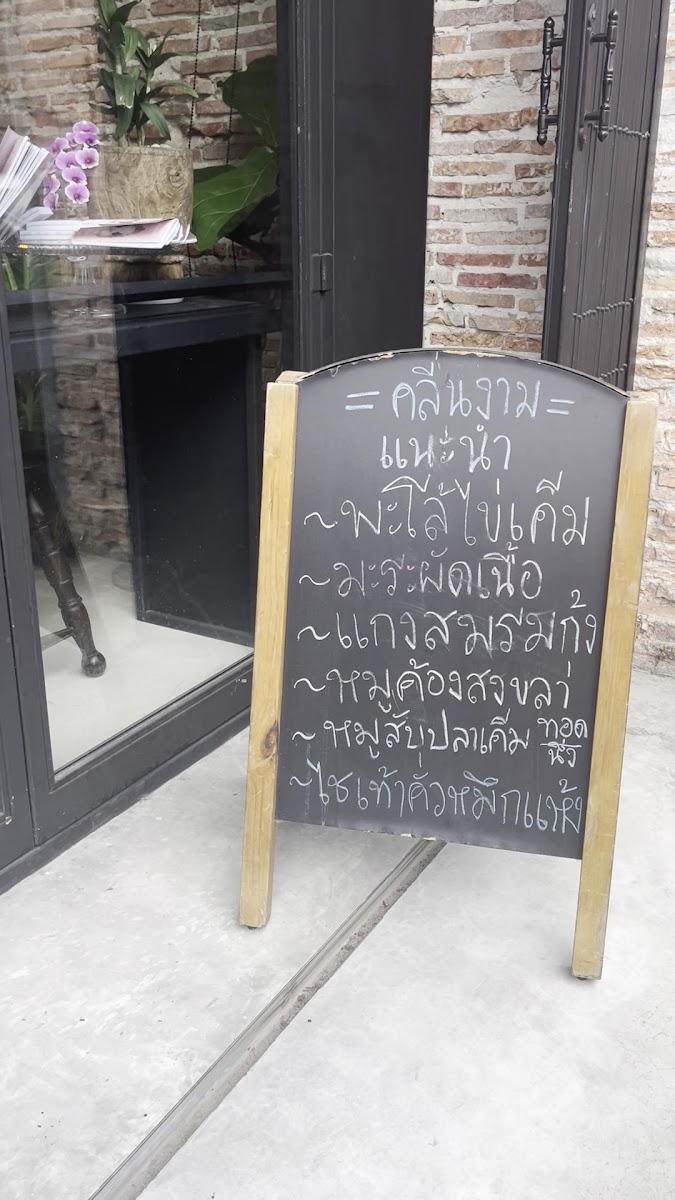 = คลื่นงาม =
แนะนำ
~ พะโล้ไข่เค็ม
~ มะระผัดเนื้อ
~ แกงสมรมกุ้ง
~ หมูค้องสงขลา
~ หมูสับปลาเค็ม ทอด
นึ่ง
~ ไชเท้าคั่วหมึกแห้ง